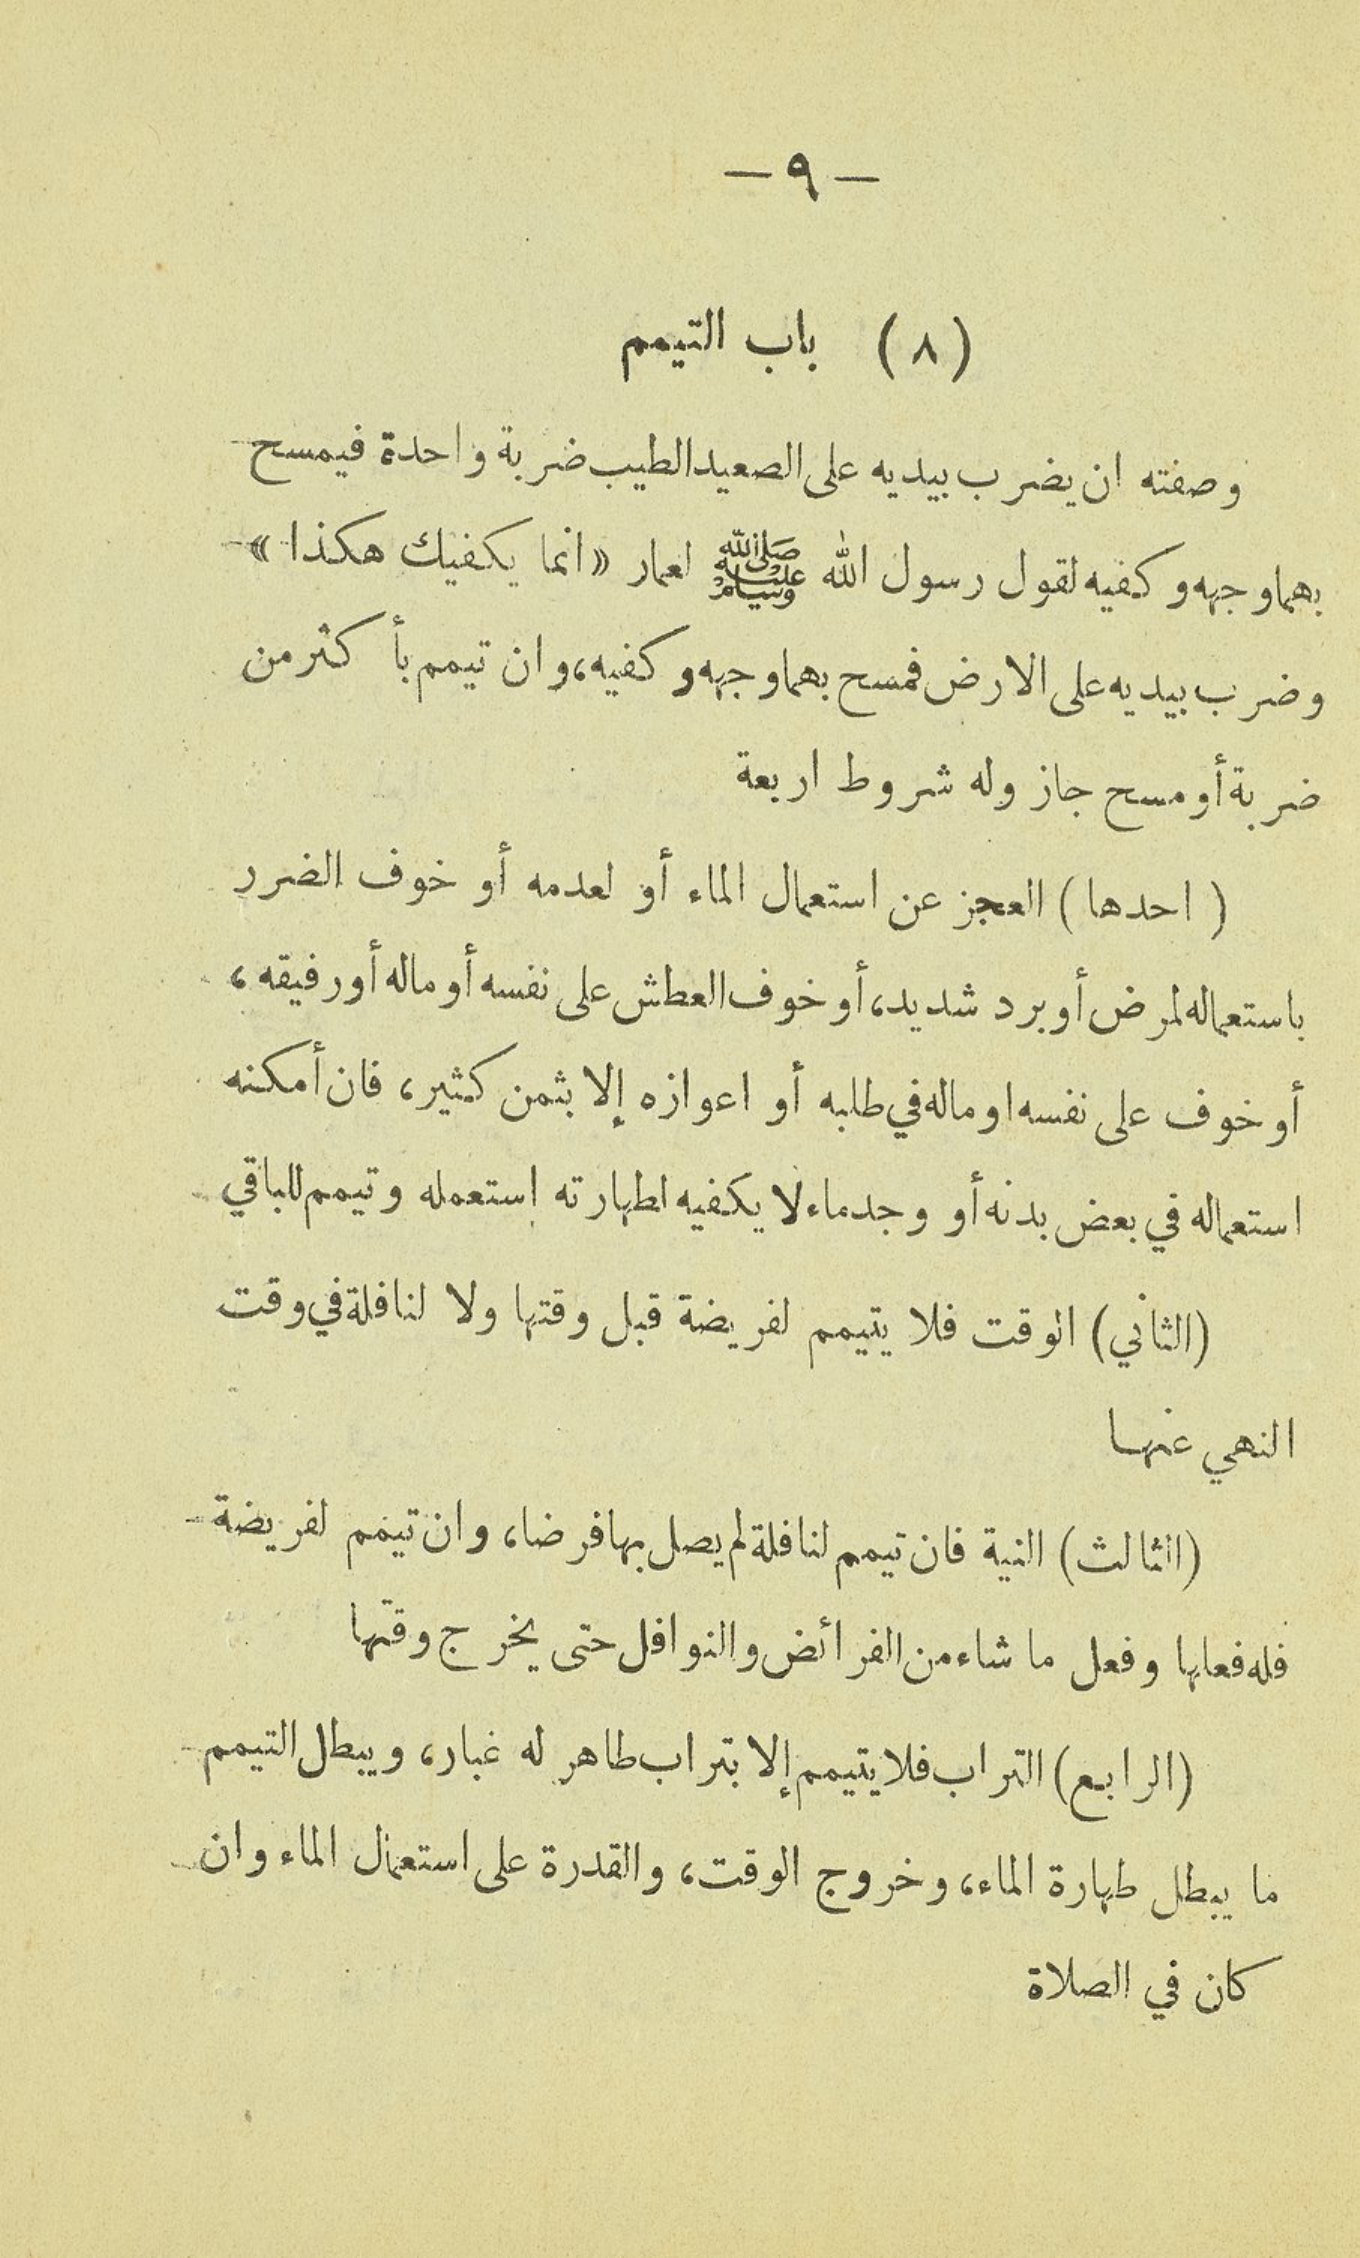 — ٩ —
(٨) باب التيمم
وصفته ان يضرب بيديه على الصعيد الطيب ضربة واحدة فيمسح
بهما وجهه وكفيه لقول رسول الله ﷺ لعمار «انما يكفيك هكذا»
وضرب بيديه على الارض فمسح بهما وجهه وكفيه، وان تيمم بأكثر من
ضربة أو مسح جاز وله شروط اربعة
(احدها) العجز عن استعمال الماء أو لعدمه أو خوف الضرر
باستعماله لمرض أو برد شديد، أو خوف العطش على نفسه أو ماله أو رفيقه،
أو خوف على نفسه او ماله في طلبه أو اعوازه إلا بثمن كثير، فان أمكنه
استعماله في بعض بدنه أو وجد ماء لا يكفيه لطهارته استعمله وتيمم للباقي
(الثاني) الوقت فلا يتيمم لفريضة قبل وقتها ولا لنافلة في وقت
النهي عنها
(الثالث) النية فان تيمم لنافلة لم يصل بها فرضا، وان تيمم لفريضة
فله فعلها وفعل ما شاء من الفرائض والنوافل حتى يخرج وقتها
(الرابع) التراب فلا يتيمم إلا بتراب طاهر له غبار، ويبطل التيمم
ما يبطل طهارة الماء، وخروج الوقت، والقدرة على استعمال الماء وان
كان في الصلاة